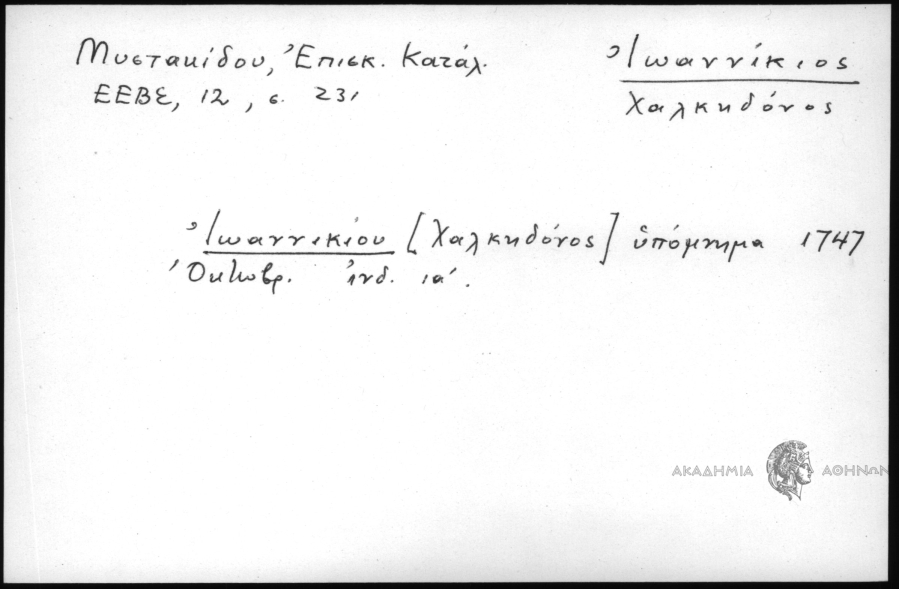 Μυστακίδου, Ἐπισκ. Κατάλ.
ΕΕΒΣ, 12, σ. 231
Ἰωαννίκιος
Χαλκηδόνος
Ἰωαννικίου [Χαλκηδόνος] ὑπόμνημα 1747
Ὀκτωβρ. ἰνδ. ια΄.
ΑΚΑΔΗΜΙΑ ΑΘΗΝΩΝ